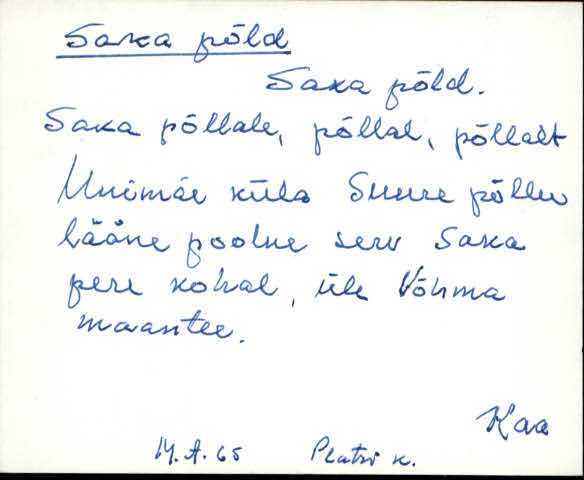 Saka põld
Saka põld.
Saka põllale, põllal, põllalt
Unimäe küla Suure põllu
lääne poolne serv Saka
pere kohal, üle Võhma
maantee.
Kaa
65 Platsi k.